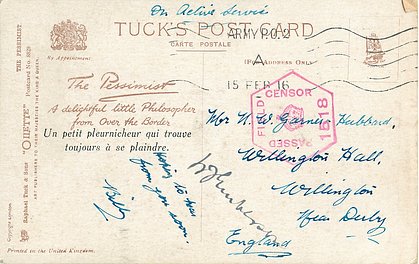 On Active Service
TUCK'S POSTCARD
CARTE POSTALE
ARMY P.O. 2
A
15 FEB 16
(FOR ADDRESS ONLY)
By Appointment
THE PESSIMIST
Postcard No. 8629
Raphael Tuck & Sons' "OILETTE"
ART PUBLISHERS TO THEIR MAJESTIES THE KING & QUEEN
Copyright
The Pessimist
A delightful little Philosopher
from Over the Border
Un petit pleurnicheur qui trouve
toujours à se plaindre.
Hoping to hear
from you soon.
Billy
PASSED
FIELD
CENSOR
1518
Mr N. W. Garnier Hubbard,
Willington Hall,
Willington
Near Derby
England
Printed in the United Kingdom.